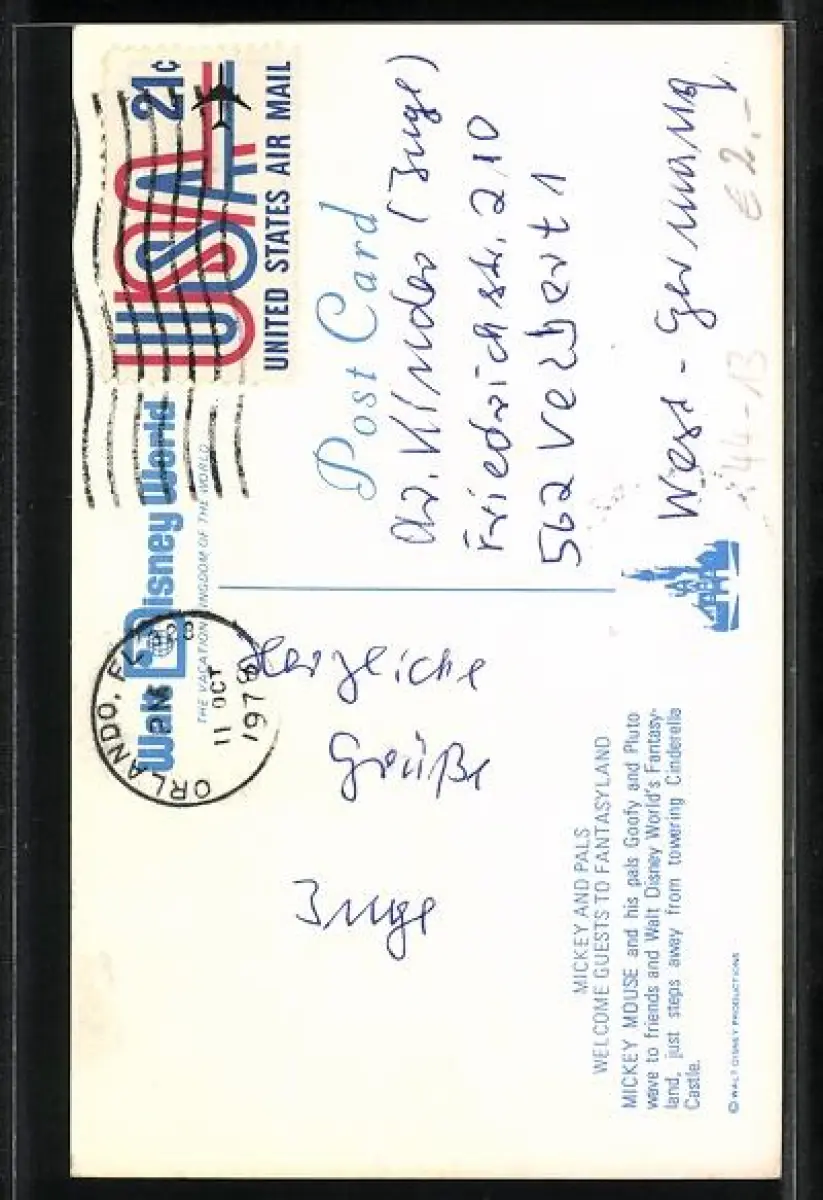 Walt Disney World
THE VACATION KINGDOM OF THE WORLD
ORLANDO, FL 328
PM
11 OCT
1978
USA 21c
UNITED STATES AIR MAIL
Post Card
Herzliche
Grüße
Inge
Kinder (Inge)
Friedrichstr. 210
562 Velbert 1
West-Germany
€ 2.-
44-13
MICKEY AND PALS
WELCOME GUESTS TO FANTASYLAND
MICKEY MOUSE and his pals Goofy and Pluto
wave to friends and Walt Disney World's Fantasy-
land, just steps away from towering Cinderella
Castle.
© WALT DISNEY PRODUCTIONS